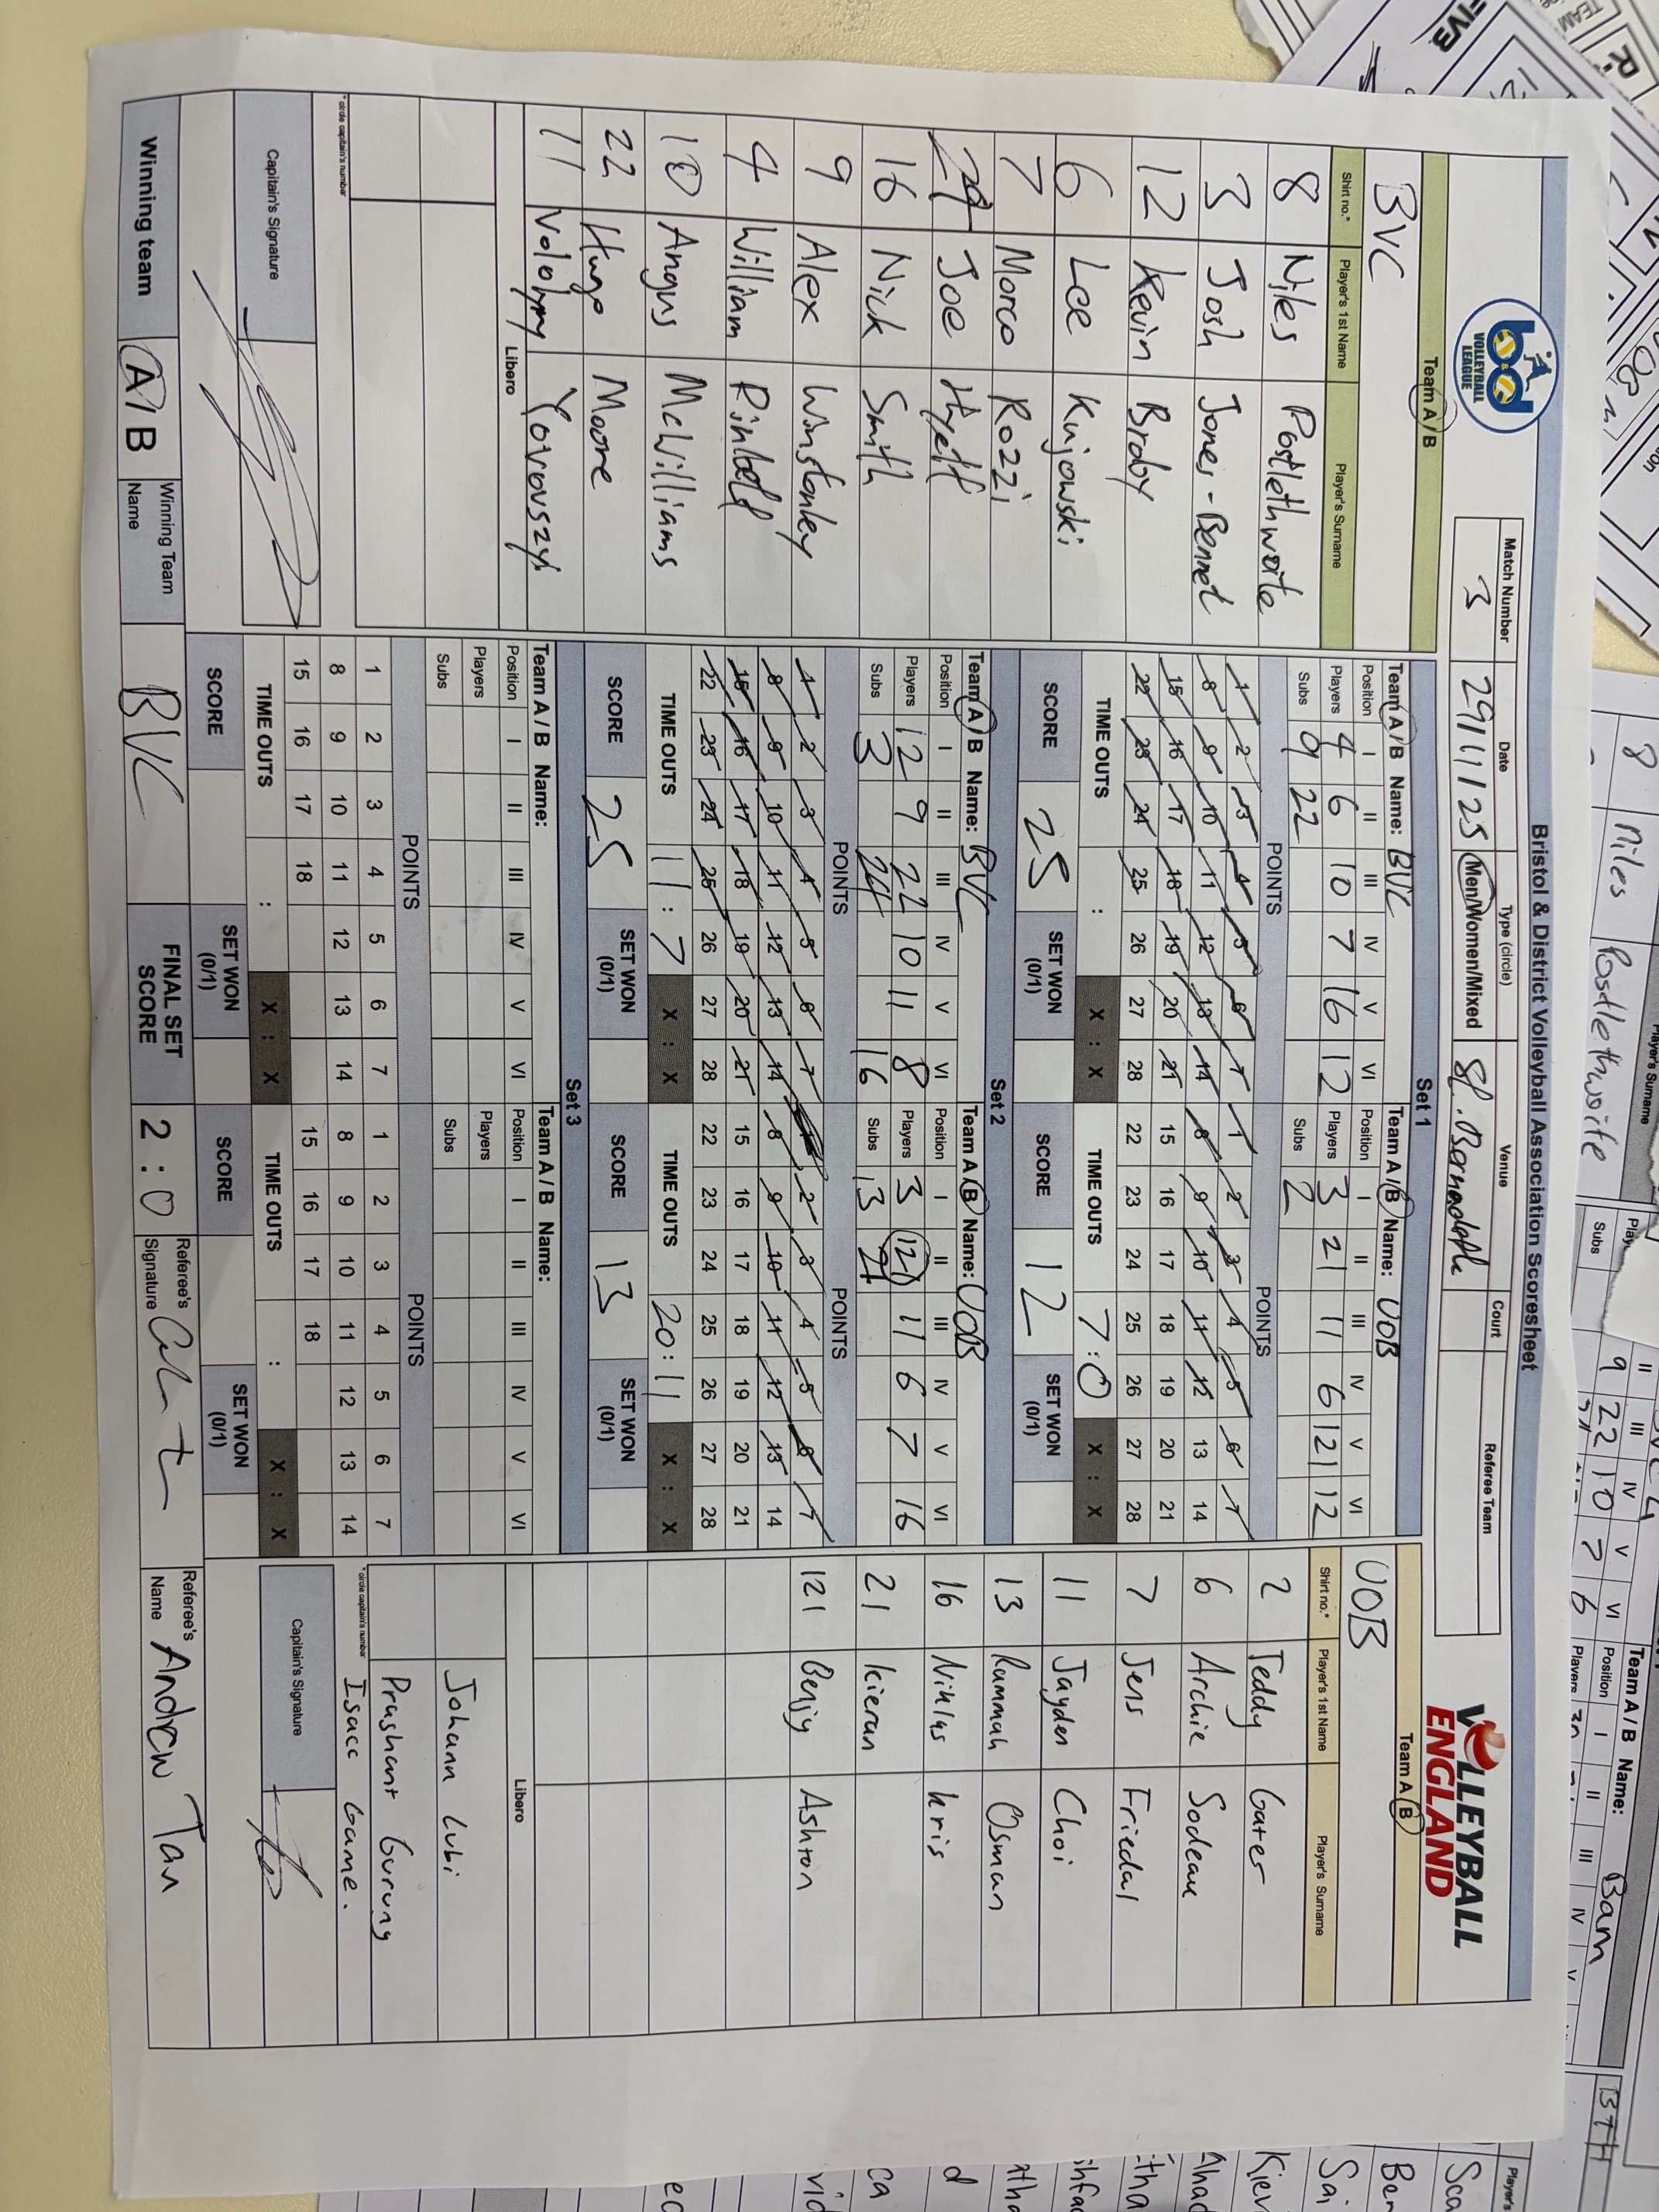 Bristol & District Volleyball Association Scoresheet
b&d
VOLLEYBALL
LEAGUE
VOLLEYBALL
ENGLAND
Match Number Date Type (circle) Venue Court Referee Team
3 29/11/25 Men/Women/Mixed
Team A / B
BVC
Shirt no.* Player's 1st Name Player's Surname
8 Niles Postlethwaite
3 Josh Jones-Bennet
12 Kevin Braby
6 Lee Kujawski
7 Marco Rozzi
Joe Hyett
16 Nick Smith
9 Alex Winstanley
4 William
10 Angus McWilliams
22 Hugo Moore
Libero
11
* circle captain's number
Capitain's Signature
Set 1
Team A / B Name: BVC
Position I II III IV V VI
Players 4 6 10 7 16 12
Subs 9 22
POINTS
1 2 3 4 5 6 7
8 9 10 11 12 13 14
15 16 17 18 19 20 21
22 23 24 25 26 27 28
TIME OUTS : X : X
SCORE 25 SET WON (0/1)
Team A / B Name: UOB
Position I II III IV V VI
Players 3 21 11 6 121 12
Subs 2
POINTS
1 2 3 4 5 6 7
8 9 10 11 12 13 14
15 16 17 18 19 20 21
22 23 24 25 26 27 28
TIME OUTS 7:0 X : X
SCORE 12 SET WON (0/1)
Set 2
Team A / B Name: BVC
Position I II III IV V VI
Players 12 9 22 10 11 8
Subs 3 24 16
POINTS
1 2 3 4 5 6 7
8 9 10 11 12 13 14
15 16 17 18 19 20 21
22 23 24 25 26 27 28
TIME OUTS 11 : 7 X : X
SCORE 25 SET WON (0/1)
Team A / B Name: UOB
Position I II III IV V VI
Players 3 121 11 6 7 16
Subs 13 21
POINTS
2 3 4 5 6 7
8 9 10 11 12 13 14
15 16 17 18 19 20 21
22 23 24 25 26 27 28
TIME OUTS 20:11 X : X
SCORE 13 SET WON (0/1)
Set 3
Team A / B Name:
Position I II III IV V VI
Players
Subs
POINTS
1 2 3 4 5 6 7
8 9 10 11 12 13 14
15 16 17 18
TIME OUTS : X : X
SCORE SET WON (0/1)
Team A / B Name:
Position I II III IV V VI
Players
Subs
POINTS
1 2 3 4 5 6 7
8 9 10 11 12 13 14
15 16 17 18
TIME OUTS : X : X
SCORE SET WON (0/1)
Team A / B
UOB
Shirt no.* Player's 1st Name Player's Surname
2 Teddy Gater
6 Archie Sodeau
7 Jens Friedal
11 Jayden Choi
13 Rammah Osman
16 Niklas Kris
21 Kieran
121 Benjy Ashton
Libero
Johann Lubi
Prashant Gurung
Isacc Game.
* circle captain's number
Capitain's Signature
Winning team A / B Winning Team Name BVC FINAL SET SCORE 2 : 0 Referee's Signature Referee's Name Andrew Tan
8 Niles Postlethwaite
Player's Surname
Team A / B Name: Bam
FIVB
TEAM